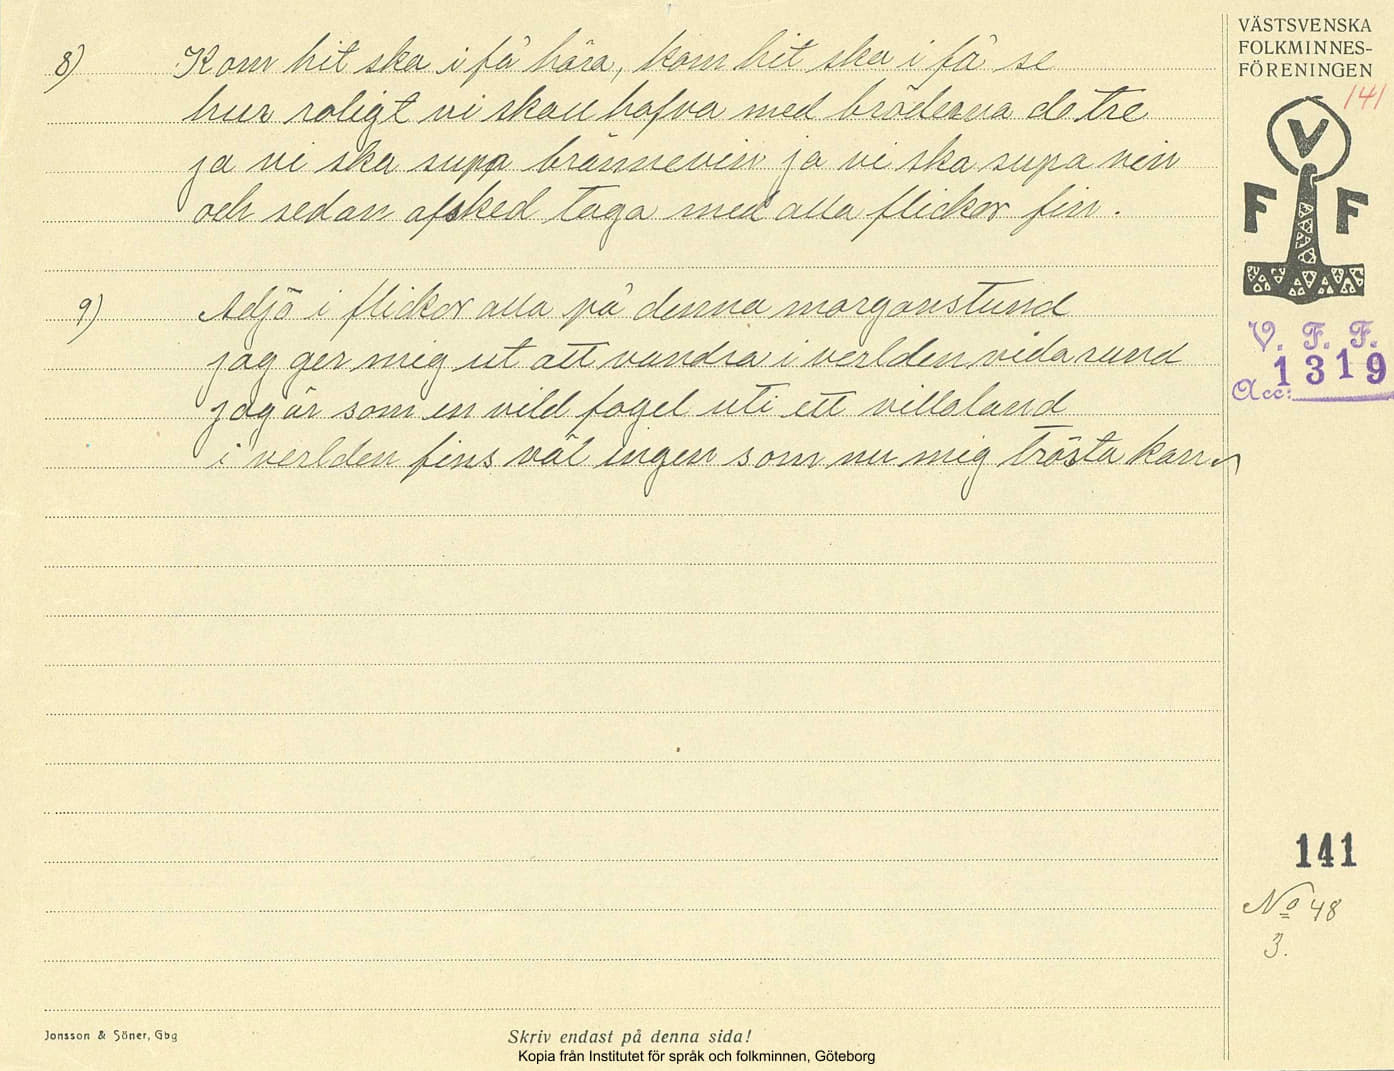 8) Kom hit ska i få höra, kom hit ska i få se
hur roligt vi skall hafva med bröderna de tre
ja vi ska supa brännevin ja vi ska supa vin
och sedan afsked taga med alla flickor fin.
9) Adjö i flickor alla på denna morgonstund
jag ger mig ut att vandra i verlden vida rund
jag är som en vild fogel uti ett villoland
i verlden fins väl ingen som nu mig trösta kan
VÄSTSVENSKA
FOLKMINNES-
FÖRENINGEN
141
V
F F
V. F. F.
Acc: 1319
141
No 48
3.
Jonsson & Söner, Gbg
Skriv endast på denna sida!
Kopia från Institutet för språk och folkminnen, Göteborg